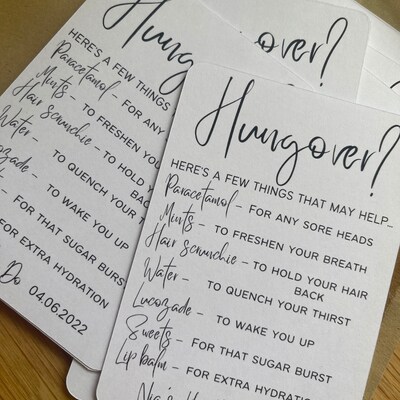 Hungover?
HERE'S A FEW THINGS THAT MAY HELP_
Paracetamol - FOR ANY SORE HEADS
Mints - TO FRESHEN YOUR BREATH
Hair scrunchie - TO HOLD YOUR HAIR
BACK
Water - TO QUENCH YOUR THIRST
Lucozade - TO WAKE YOU UP
Sweets - FOR THAT SUGAR BURST
Lip balm - FOR EXTRA HYDRATION
Hungover?
HERE'S A FEW THINGS
Paracetamol - FOR ANY
Mints - TO FRESHEN YOU
Hair scrunchie - TO HOLD
BACK
Water - TO QUENCH YOUR T
ozade - TO WAKE YOU UP
- FOR THAT SUGAR BURST
FOR EXTRA HYDRATION
Do 04.06.2022